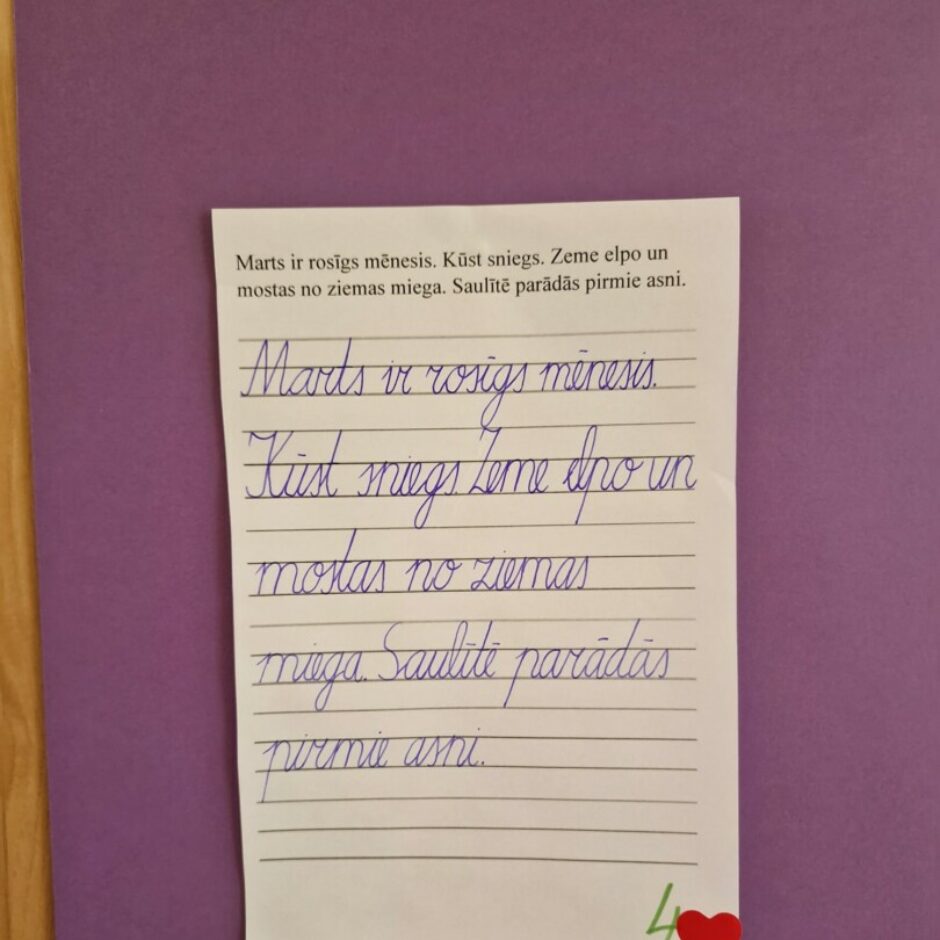 Marts ir rosīgs mēnesis. Kūst sniegs. Zeme elpo un
mostas no ziemas miega. Saulītē parādās pirmie asni.
Marts ir rosīgs mēnesis.
Kūst sniegs. Zeme elpo un
mostas no ziemas
miega. Saulītē parādās
pirmie asni.
4